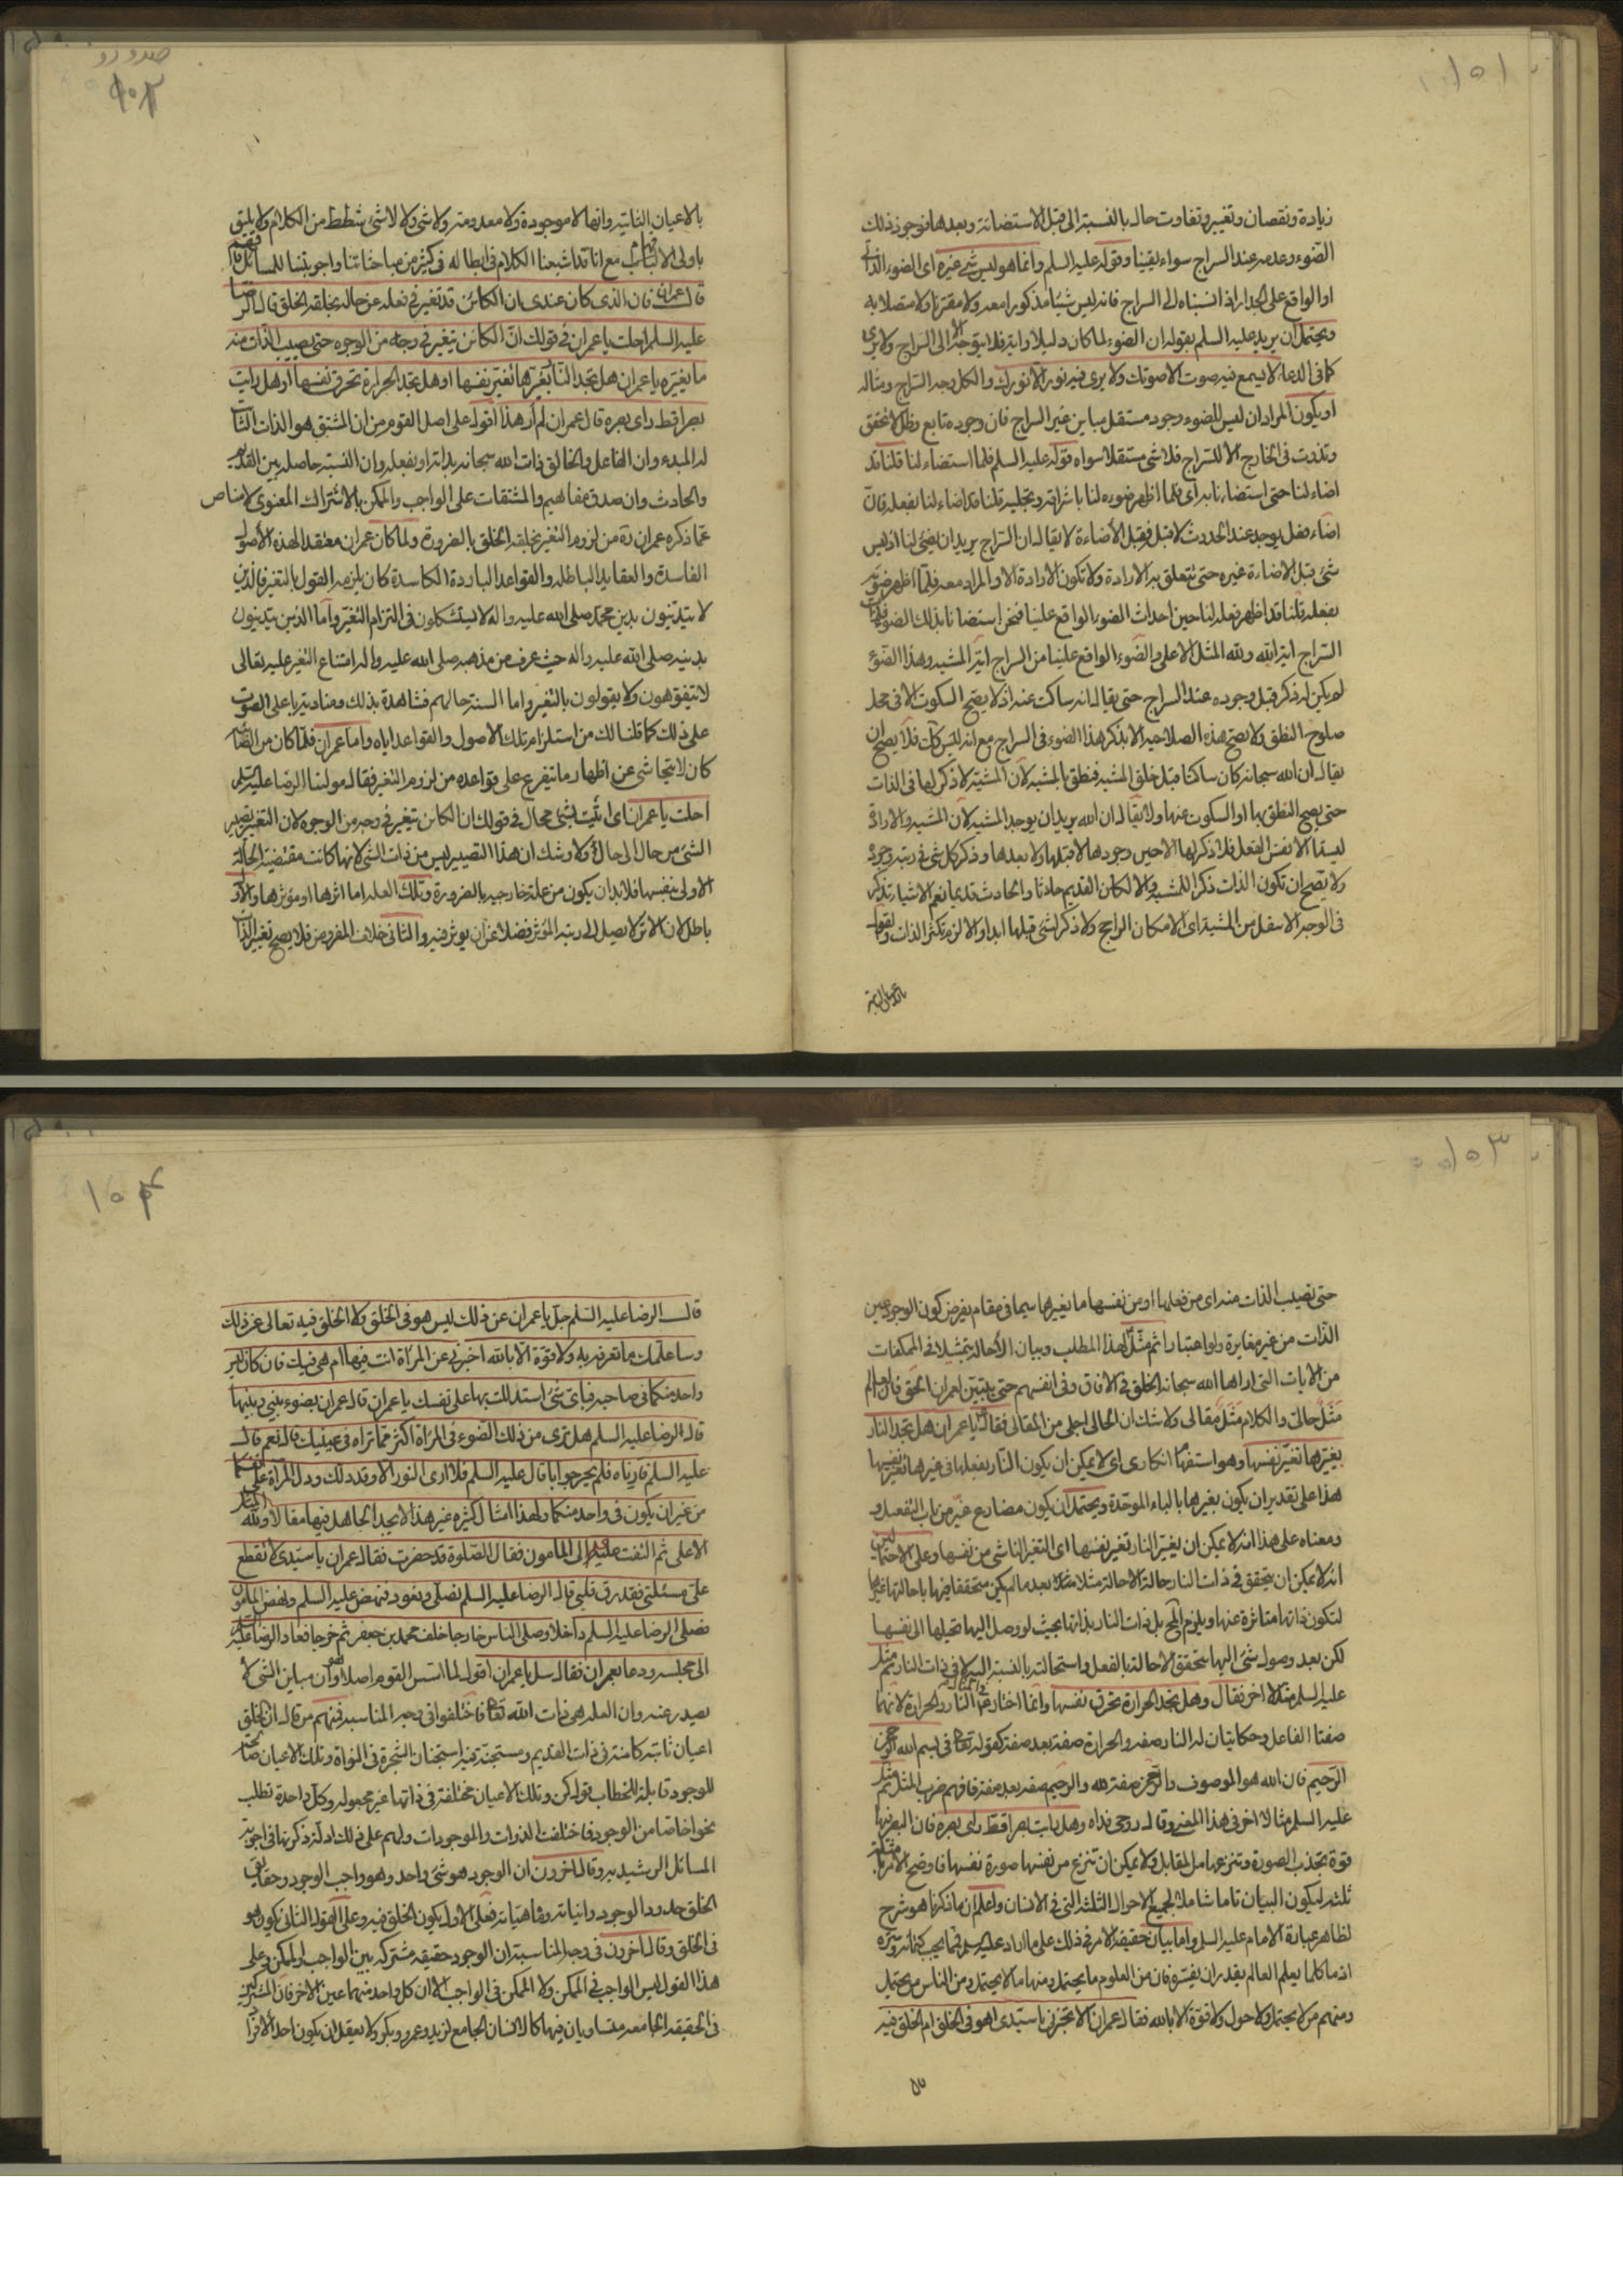 ١٥١
زيادة ونقصان وتغيير وتفاوت حال بالنسبة الى قبل الاستضائة وبعدها فوجود ذلك
الضوء وعدمه عند السراج سواء يقينا وقوله عليه السلم وانما هو ليس شئ غيره اى الضوء الذاتى
او الواقع على الجدار اذا نسبناه الى السراج فانه ليس شيئا مذكورا معه ولا مقترنا ولا متصلا به
ويحتمل ان يريد عليه السلم بقوله ان الضوء لما كان دليلا وآية فلا يتوجه الا الى السراج ولا يرى
كما فى الدعاء لا يسمع فيه صوت الا صوتك ولا يرى فيه نور الا نورك والكل وجه السراج ومثاله
او يكون المراد ان ليس للضوء وجود مستقل مباين غير السراج فان وجوده تابع وظل لا تحقق
وتذوت فى الخارج الا للسراج فلا شئ مستقلا سواه قوله عليه السلم فلما استضاء لنا قلنا قد
اضاء لنا حتى استضاءنا به اى فلما اظهر ضوءه لنا باشراقه وتجليه قلنا قد اضاء لنا بفعله فان
اضاء فعل يوجد عند الحدوث لا قبل فقبل الأضاءة لا يقال ان السراج يريد ان يضئ لنا اذ ليس
شئ قبل الاضاءة غيره حتى تتعلق به الارادة ولا تكون الارادة الا والمراد معه فلما اظهر ضوئه
بفعله قلنا قد اظهر فعله لنا حين احداث الضوء الواقع علينا فنحن استضانا بذلك الضوء
السراج اية الله ولله المثل الاعلى والضوء الواقع علينا من السراج اية المشية وهذا الضوء
لم يكن له ذكر قبل وجوده عند السراج حتى يقال انه ساكت عنه اذ لا يصح السكوت الا فى محل
صلوح النطق ولا يصح هذه الصلاحية الا بذكر هذا الضوء فى السراج مع انه ليس كك فلا يصح ان
يقال ان الله سبحانه كان ساكتا قبل خلق المشية فنطق بالمشية لأن المشية لا ذكر لها فى الذات
حتى يصح النطق بها او السكوت عنها ولا يقال ان الله يريد ان يوجد المشية لأن المشية والارادة
ليستا الا نفس الفعل فلا ذكر لها الا حين وجودها لا قبلها ولا بعدها وذكر كل شئ فى رتبة وجوده
ولا يصح ان تكون الذات ذكرا للمشية والا لكان القديم حادثا والحادث قديما نعم الاشياء تذكر
فى الوجه الاسفل من المشية اى الامكان الراجح ولا ذكر لشئ قبلها ابدا والا لزم تكثر الذات والقول
بالاعيان الثابتة
١٥٢
بالاعيان الثابتة وانها لا موجودة ولا معدومة ولا شئ ولا لا شئ شطط من الكلام ولا يليق
باولى الالباب مع انا قد اشبعنا الكلام فى ابطاله فى كثير من مباحثاتنا واجوبتنا للمسائل فافهم
قال عمران فان الذى كان عندى ان الكائن قد تغير فى فعله عن حاله بخلقه الخلق قال الرضا
عليه السلم احلت يا عمران فى قولك انّ الكائن يتغير فى وجه من الوجوه حتى يصيب الذات منه
ما يغيّره يا عمران هل تجد النار تغيرها تغيّر نفسها او هل تجد الحرارة تحرق نفسها او هل رايت
بصرا قط راى بصره قال عمران لم أر هذا اقول على اصل القوم من ان المشتق هو الذات الثابت
له المبدء وان الفاعل والخالق ذات الله سبحانه بذاته او بفعله وان النسبة حاصلة بين القديم
والحادث وان صدق مفاهيم والمشتقات على الواجب والممكن بالاشتراك المعنوى لا مناص
عما ذكره عمران ره من لزوم التغير بخلقه الخلق بالضرورة ولما كان عمران معتقدا لهذه الأصول
الفاسدة والعقايد الباطله والقواعد الباردة الكاسدة كان يلزمه القول بالتغير فالذين
لا يتدينون بدين محمّد صلى الله عليه واله لا يستنكلون فى التزام التغيّر وأما الذين يتدينون
بدينه صلى الله عليه واله حيث عرف من مذهبه صلى الله عليه واله امتناع التغير عليه تعالى
لا يتفوهون ولا يقولون بالتغير واما السنة حالهم فشاهدة بذلك ومنادية باعلى الصوت
على ذلك كما قلنا لك من استلزام تلك الاصول والقواعد اياه واما عمران فلما كان من
كان لا يتحاشى عن اظهار ما يتفرع على قواعده من لزوم التغير فقال مولينا الرضا عليه السلم
احلت يا عمران اى اتيت بشئ محال فى قولك ان الكائن يتغير فى وجه من الوجوه لان التغيّر تصيير
الشئ من حال الى حال أولا ولا شك ان هذا التصيير ليس من ذات الشئ لانها كانت مقتضية الحالة
الاولى بنفسها فلا بد ان يكون من علة خارجية بالضرورة وتلك العلة اما اثرها او مؤثرها والاول
باطل لان الاثر لا يصل الى رتبة المؤثر فضلا عن ان يوثر فيه والثانى خلاف المفروض فلا يصح تغير الذات
١٥٣
حتى تصيب الذات منه اى من فعلها او من نفسها ما يغيرها سيما فى مقام يفرض كون الوجود عين
الذّات من غير مغايرة ولو اعتبارا ثم مثّل لهذا المطلب وبيان الأحالة بتمثيلات فى الممكنات
من الايات التى اراها الله سبحانه الخلق فى الافاق وفى انفسهم حتى يتبيّن لعمران الحق فان العالم
مَثَل حالىّ والكلام مَثَل مقالى ولا شك ان الحالى اجلى من المقالى فقال يا عمران هل تجد النار
يغيّرها تغيّر نفسها وهو استفهام انكارى اى لا يمكن ان يكون النار بفعلها فى غيرها تغيّر نفسها
هذا على تقدير ان يكون بغيرها بالباء الموحّدة ويحتمل ان يكون مضارع غيّر من باب التفعيل
ومعناه على هذا انه لا يمكن ان يغيّر النار تغير نفسها اى التغير الناشى من نفسها وعلى الاحتمالين
انه لا يمكن ان يتحقق فى ذات النار حالة الاحالة مثلا بعد ما لم يكن متحققا فيها باحالتها غيرها
لتكون ذاتها متاثرة عنها ويلزم المح بل ذات النار بذاتها بحيث لو وصل اليها تحيلها الى نفسها
لكن بعد وصول شئ اليها يتحقق الاحالة بالفعل واستحالته بالنسبة اليه لا فى ذات النار ثم مثل
عليه السلم مثلا اخر فقال وهل تجد الحرارة تحرق نفسها وانما اختار فى المثال النار والحرارة لانهما
صفتا الفاعل وحكايتان له النار صفه والحرارة صفة بعد صفة كقوله تعالى فى بسم الله الرحمن
الرّحيم فان الله هو الموصوف والرّحمن صفة لله والرّحيم صفه بعد صفة فافهم ضرب المثل ثم مثل
عليه السلم مثالا اخر فى هذا المعنى وقال روحى فداه وهل رايت بصرا قط راى بصره فان البصر فيها
قوة تجذب الصورة وتنزعها من المقابل ولا يمكن ان تنزع من نفسها صورة نفسها فاوضح الامر بامثلة
ثلثة ليكون البيان تاما شاملا لجميع الاحوال الثلثة التى فى الانسان واعلم ان ما ذكرنا هو شرح
لظاهر عبارة الامام عليه السلم واما بيان حقيقة الامر فى ذلك على ما اراد عليه السلم فمما يجب كتمانه وستره
اذ ما كلما يعلم العالم يقدر ان يفسّره فان من العلوم ما يحتمل ومنها ما لا يحتمل ومن الناس من يحتمل
ومنهم من لا يحتمل ولا حول ولا قوّة الا بالله فقال عمران الا تخبرنى يا سيّدى اهو فى الخلق ام الخلق فيه
١٥٤
قال الرضا عليه السّلم جل يا عمران عن ذلك ليس هو فى الخلق ولا الخلق فيه تعالى عن ذلك
وساعلمك ما تعرفه به ولا قوّة الا بالله اخبرنى عن المرآة انت فيها ام هى فيك فان كان ليس
واحد منكما فى صاحبه فباى شئ استدللت بها على نفسك يا عمران قال عمران بضوء بينى وبينها
قال الرضا عليه السلم هل ترى من ذلك الضوء فى المرآة اكثر مما تراه فى عينيك قال نعم قال
عليه السلم فارناه فلم يحر جوابا قال عليه السلم فلا ارى النور الا وقد دلك ودل المراة على انفسكما
من غير ان يكون فى واحد منكما ولهذا امثال كثيره غير هذا لا يجد الجاهل فيها مقالا ولله المثل
الاعلى ثم التفت عليه السلم الى المأمون فقال الصّلوة قد حضرت فقال عمران يا سيّدى لا تقطع
علىّ مسئلتى فقد رق قلبى قال الرضا عليه السلم نصلى ونعود فنهض عليه السلم ونهض المأمون
فصلى الرضا عليه السلم داخلا وصلى الناس خارجا خلف محمد بن جعفر ثم خرجا فعاد الرضا عليه السلم
الى مجلسه ودعا بعمران فقال سل يا عمران اقول لما اسّس القوم اصلا وهو ان مباين الشئ لا
يصدر عنه وان العلة هى ذات الله تعالى فاختلفوا فى وجه المناسبه فمنهم من قال ان للخلق
اعيان ثابتة كامنة فى ذات القديم ومستجنّة فيه استجنان الشجرة فى النواة وتلك الاعيان صالحة
للوجود قابلة للخطاب بقول كن وتلك الاعيان مختلفة فى ذاتها غير مجعوله وكل واحدة تطلب
نحوا خاصا من الوجود فاختلفت الذوات والموجودات ولهم على ذلك ادلة ذكرتها فى اجوبة
المسائل الرشيديه وقال اخرون ان الوجود هو شئ واحد وهو واجب الوجود وحقايق
الخلق حدود الوجود وانياته وماهياته فعلى الاول يكون الخلق فيه وعلى القول الثانى يكون هو
فى الخلق وقال اخرون فى وجه المناسبة ان الوجود حقيقه مشتركه بين الواجب والممكن فعلى
هذا القول ليس الواجب فى الممكن ولا الممكن فى الواجب الا ان كل واحد منهما عين الاخر فان المشتركين
فى الحقيقه الجامعه متساويان فيها كالانسان الجامع لزيد وعمرو وبكر ولا يعقل ان يكون احد الأفراد